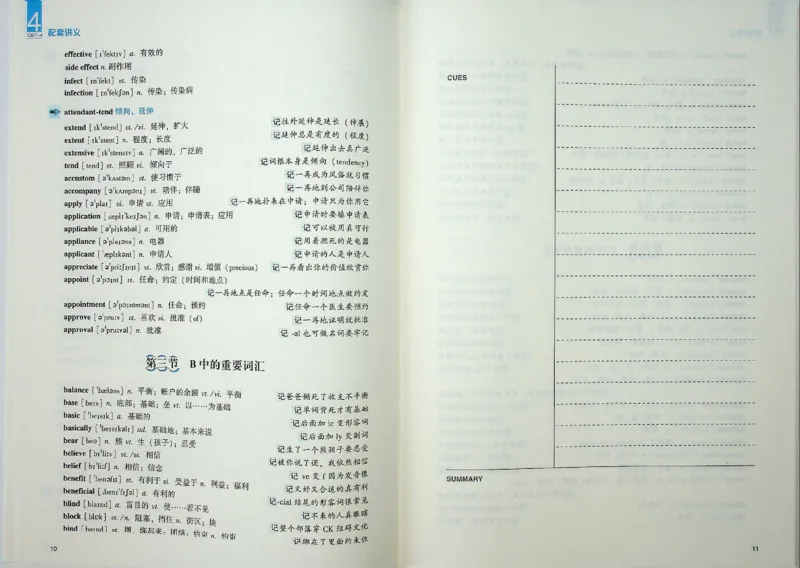 4
CET-4
配套讲义
effective [ɪ'fektɪv] a. 有效的
side effect n. 副作用
infect [ɪn'fekt] vt. 传染
infection [ɪn'fekʃən] n. 传染；传染病
attendant-tend 倾向，延伸
extend [ɪk'stend] vt. /vi. 延伸，扩大 记往外延伸是延长（伸展）
extent [ɪk'stent] n. 程度；长度 记延伸总是有度的（程度）
extensive [ɪk'stensɪv] a. 广阔的，广泛的 记延伸出去真广泛
tend [tend] vt. 照顾 vi. 倾向于 记词根本身是倾向（tendency）
accustom [ə'kʌstəm] vt. 使习惯于 记一再成为风俗就习惯
accompany [ə'kʌmpənɪ] vt. 陪伴；伴随 记一再地到公司陪伴你
apply [ə'plaɪ] vi. 申请 vt. 应用 记一再地扑来在申请；申请只为你用它
application [æplɪ'keɪʃən] n. 申请；申请表；应用 记申请时要填申请表
applicable [ə'plɪkəbəl] a. 可用的 记可以被用真可行
appliance [ə'plaɪəns] n. 电器 记用着摁死的是电器
applicant ['æplɪkənt] n. 申请人 记申请的人是申请人
appreciate [ə'pri:ʃɪeɪt] vt. 欣赏；感谢 vi. 增值（precious） 记一再看出你的价值欣赏你
appoint [ə'pɔɪnt] vt. 任命；约定（时间和地点）
记一再地点是任命；任命一个时间地点做约定
appointment [ə'pɔɪntmənt] n. 任命；预约 记任命一个医生要预约
approve [ə'pru:v] vt. 喜欢 vi. 批准（of） 记一再地证明就批准
approval [ə'pru:vəl] n. 批准 记 -al 也可做名词要牢记
第三节 B 中的重要词汇
balance ['bæləns] n. 平衡；账户的余额 vt. /vi. 平衡 记爸爸摁死了收支不平衡
base [beɪs] n. 底部；基础；垒 vt. 以……为基础 记单词背死才有基础
basic ['beɪsɪk] a. 基础的 记后面加 ic 变形容词
basically ['beɪsɪkəlɪ] ad. 基础地；基本来说 记后面加 ly 变副词
bear [beə] n. 熊 vt. 生（孩子）；忍受 记生了一个熊孩子要忍受
believe [bɪ'li:v] vt. /vi. 相信 记被你说了谎，我依然相信
belief [bɪ'li:f] n. 相信；信念 记 ve 变 f 因为发音像
benefit ['benəfɪt] vt. 有利于 vi. 受益于 n. 利益；福利 记又好又合适的真有利
beneficial [ˌbenɪ'fɪʃəl] a. 有利的 记-cial 结尾的形容词很常见
blind [blaɪnd] a. 盲目的 vt. 使……看不见 记不来的人真眼瞎
block [blɒk] vt. /n. 阻塞，挡住 n. 街区；块 记整个部落穿 CK 阻碍文化
bind [baɪnd] vt. 捆，绑起来；团结；约束 n. 约束 记绑在了里面约束你
10
CUES
SUMMARY
11